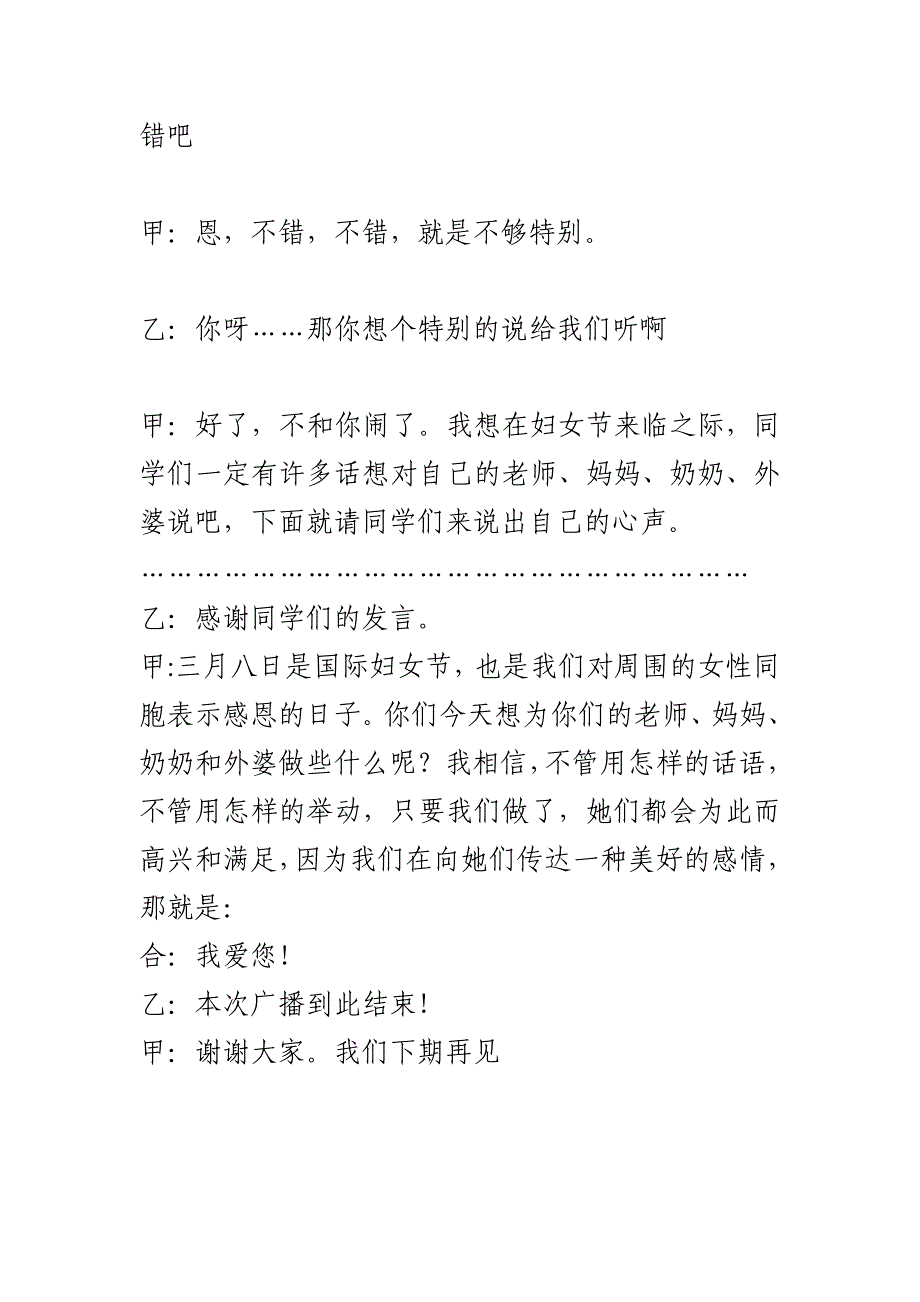 错吧
甲：恩，不错，不错，就是不够特别。
乙：你呀……那你想个特别的说给我们听啊
甲：好了，不和你闹了。我想在妇女节来临之际，同
学们一定有许多话想对自己的老师、妈妈、奶奶、外
婆说吧，下面就请同学们来说出自己的心声。
………………………………………………………………
乙：感谢同学们的发言。
甲:三月八日是国际妇女节，也是我们对周围的女性同
胞表示感恩的日子。你们今天想为你们的老师、妈妈、
奶奶和外婆做些什么呢？我相信，不管用怎样的话语，
不管用怎样的举动，只要我们做了，她们都会为此而
高兴和满足，因为我们在向她们传达一种美好的感情，
那就是：
合：我爱您！
乙：本次广播到此结束！
甲：谢谢大家。我们下期再见